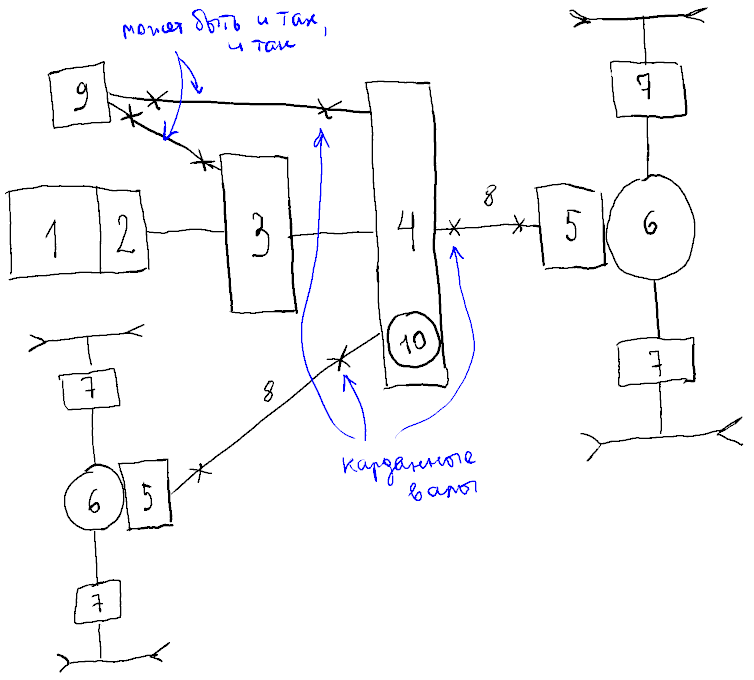 может быть и так,
и так
9
7
8
1
2
3
4
5
6
10
7
7
8
6
5
карданные
валы
7